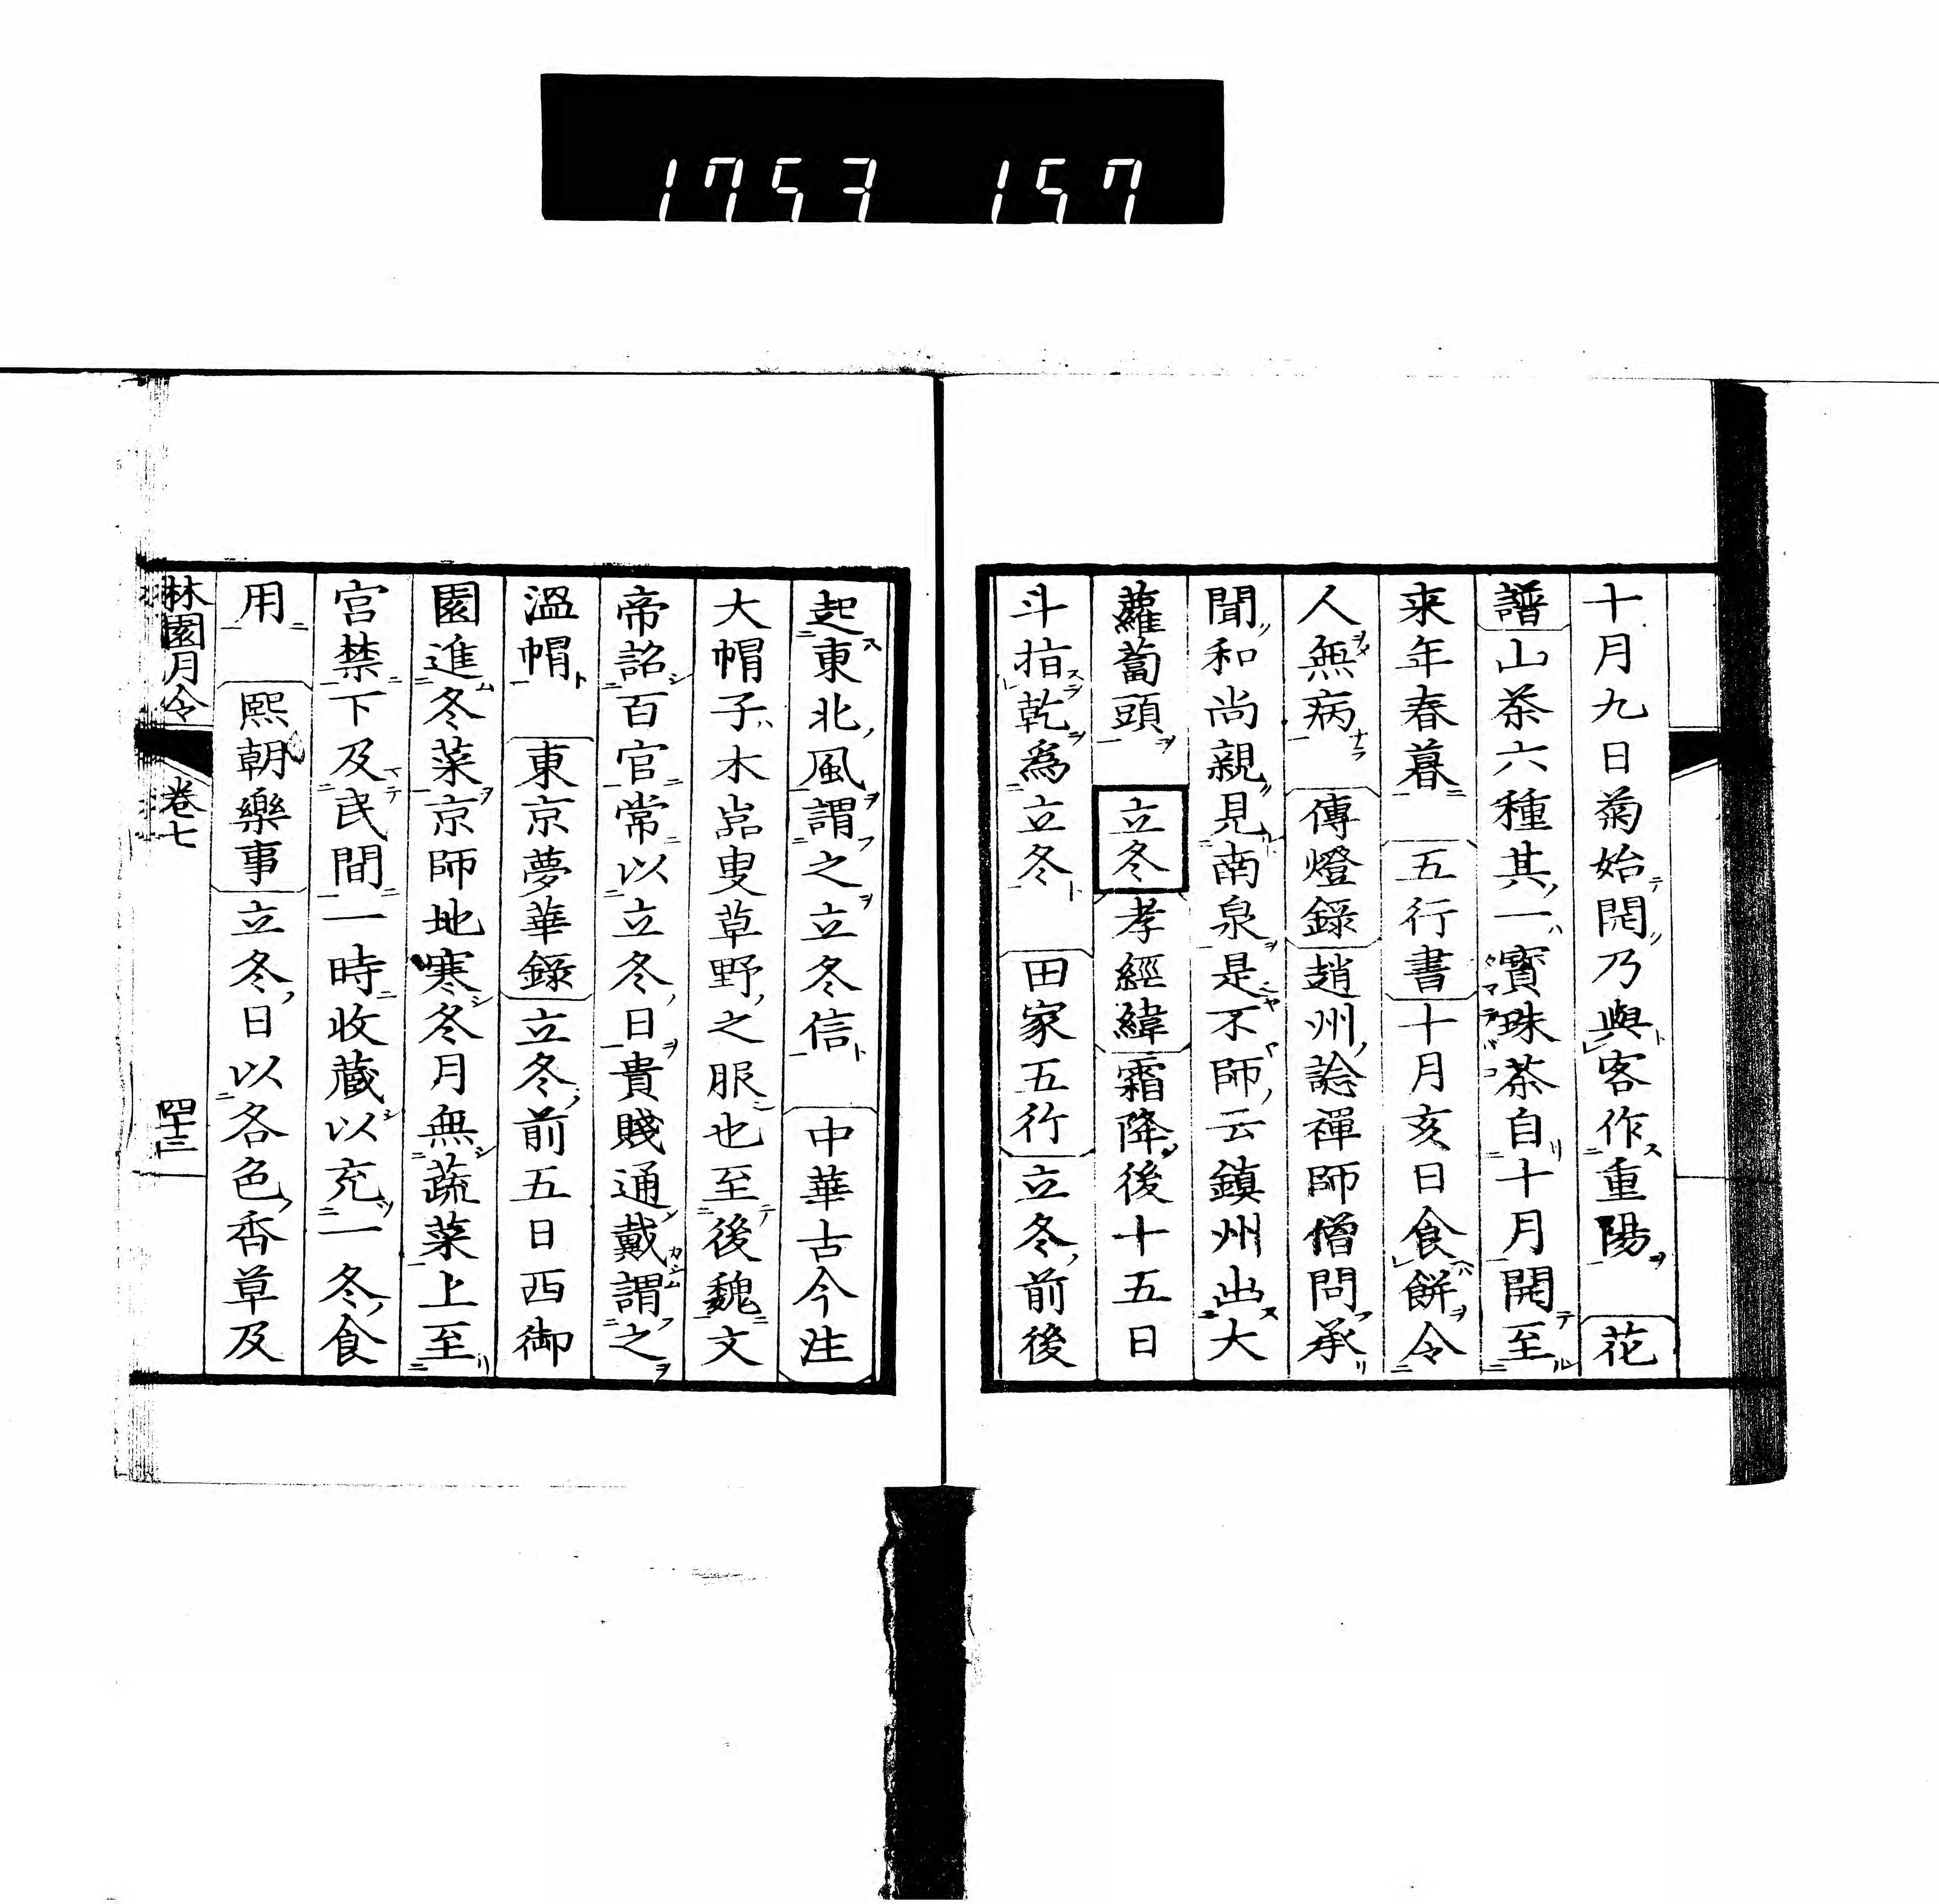 1753 157
十月九日菊始開乃與客作重陽 花
譜 山茶六種其一寶珠茶自十月開至
来年春暮 五行書 十月亥日食餅令
人無病 傳燈錄 趙州諗禪師僧問承
聞和尚親見南泉是不師云鎮州出大
蘿蔔頭 立冬 孝經緯 霜降後十五日
斗指乾爲立冬 田家五行 立冬前後
起東北風謂之立冬信 中華古今注
大帽子木嵓叟草野之服也至後魏文
帝詔百官常以立冬日貴賤通戴謂之
溫帽 東京夢華錄 立冬前五日西御
園進冬菜京師地寒冬月無蔬菜上至
宮禁下及民間一時收藏以充一冬食
用 熙朝樂事 立冬日以各色香草及
林園月令 卷七 四十三